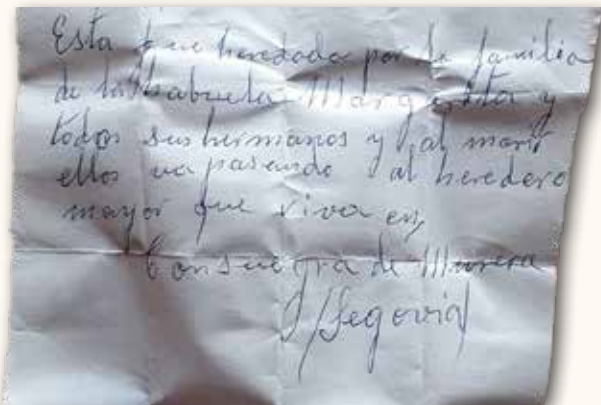 Esta fue heredada por la familia
de la abuela Margarita y
todos sus hermanos y al morir
ellos va pasando al heredero
mayor que viva en,
Consuegra de Murera
/Segovia/